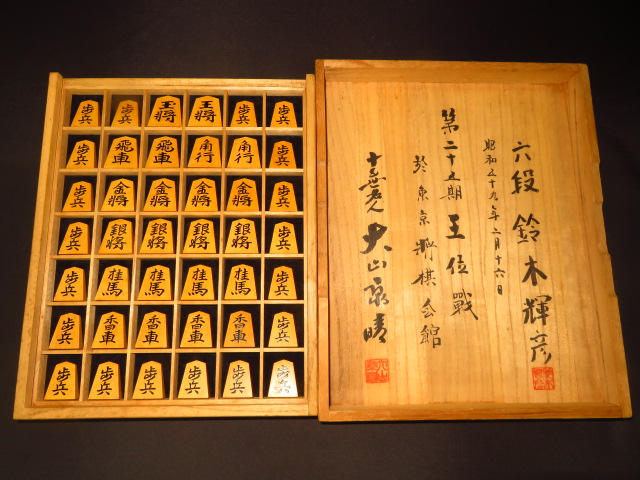 歩兵 歩兵 玉将 王将 歩兵 歩兵
歩兵 飛車 飛車 角行 角行 歩兵
歩兵 金将 金将 金将 金将 歩兵
歩兵 銀将 銀将 銀将 銀将 歩兵
歩兵 桂馬 桂馬 桂馬 桂馬 歩兵
歩兵 香車 香車 香車 香車 歩兵
歩兵 歩兵 歩兵 歩兵 歩兵 歩兵
六段 鈴木輝彦
昭和五十九年二月十六日
第二十五期 王位戰
於東京將棋会館
十五世名人 大山康晴